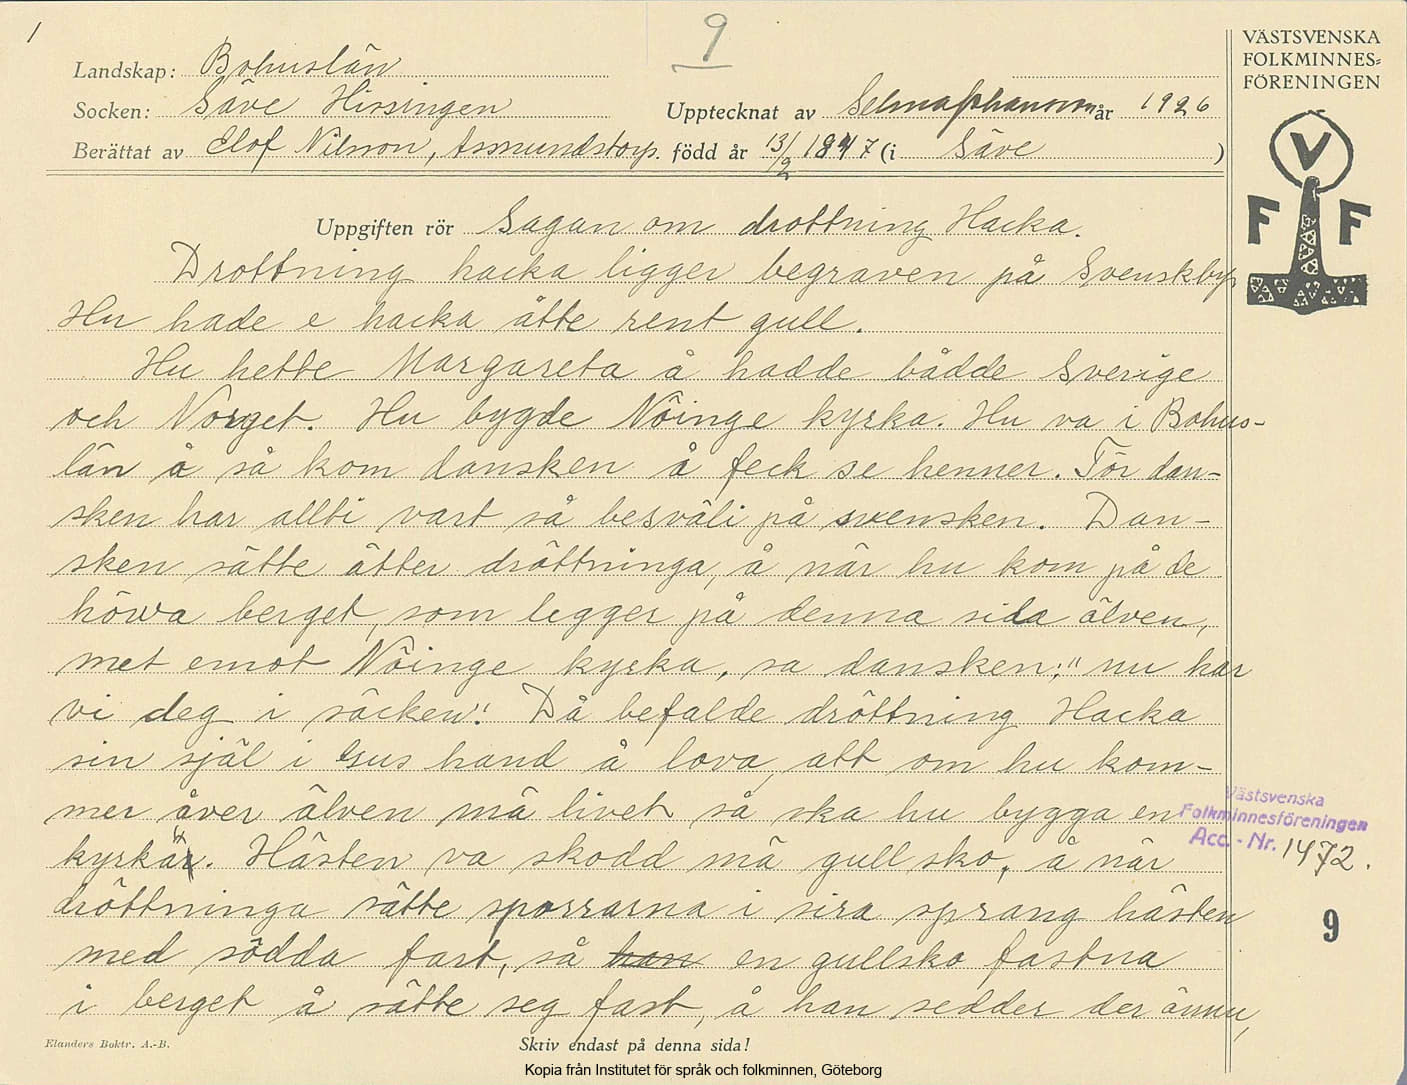 1
9
VÄSTSVENSKA
FOLKMINNES=
FÖRENINGEN
Landskap: Bohuslän
Socken: Säve Hissingen
Upptecknat av Selma Johansson år 1926
Berättat av Elof Nilsson, Assmundstorp. född år 13/2 1847 (i Säve )
V
F F
Uppgiften rör Sagan om drottning Hacka.
Drottning hacka ligger begraven på Svenskby
Hu hade e hacka åtte rent gull.
Hu hette Margareta å hadde bådde Sverige
och Norget. Hu bygde Nöinge kyrka. Hu va i Bohus-
län å så kom dansken å feck se henner. Tör dan-
sken har allti vart så besväli på svensken. Dan-
sken sätte ätter dröttninga, å när hu kom på de
höwa berget, som legger på denna sida älven,
met emot Nöinge kyrka, sa dansken: "nu har
vi deg i säcken". Då befalde dröttning Hacka
sin själ i Gus hand å lova, att om hu kom-
mer åver älven mä livet så ska hu bygga en
kyrka. Hästen va skodd mä gull sko, å när
dröttninga sätte sporrarna i sira sprang hästen
med södda fart, så han en gullsko fastna
i berget å sätte seg fast, å han sedder der ännu,
Västsvenska
Folkminnesföreningen
Acc. - Nr. 1472.
9
Elanders Boktr. A.-B.
Skriv endast på denna sida!
Kopia från Institutet för språk och folkminnen, Göteborg